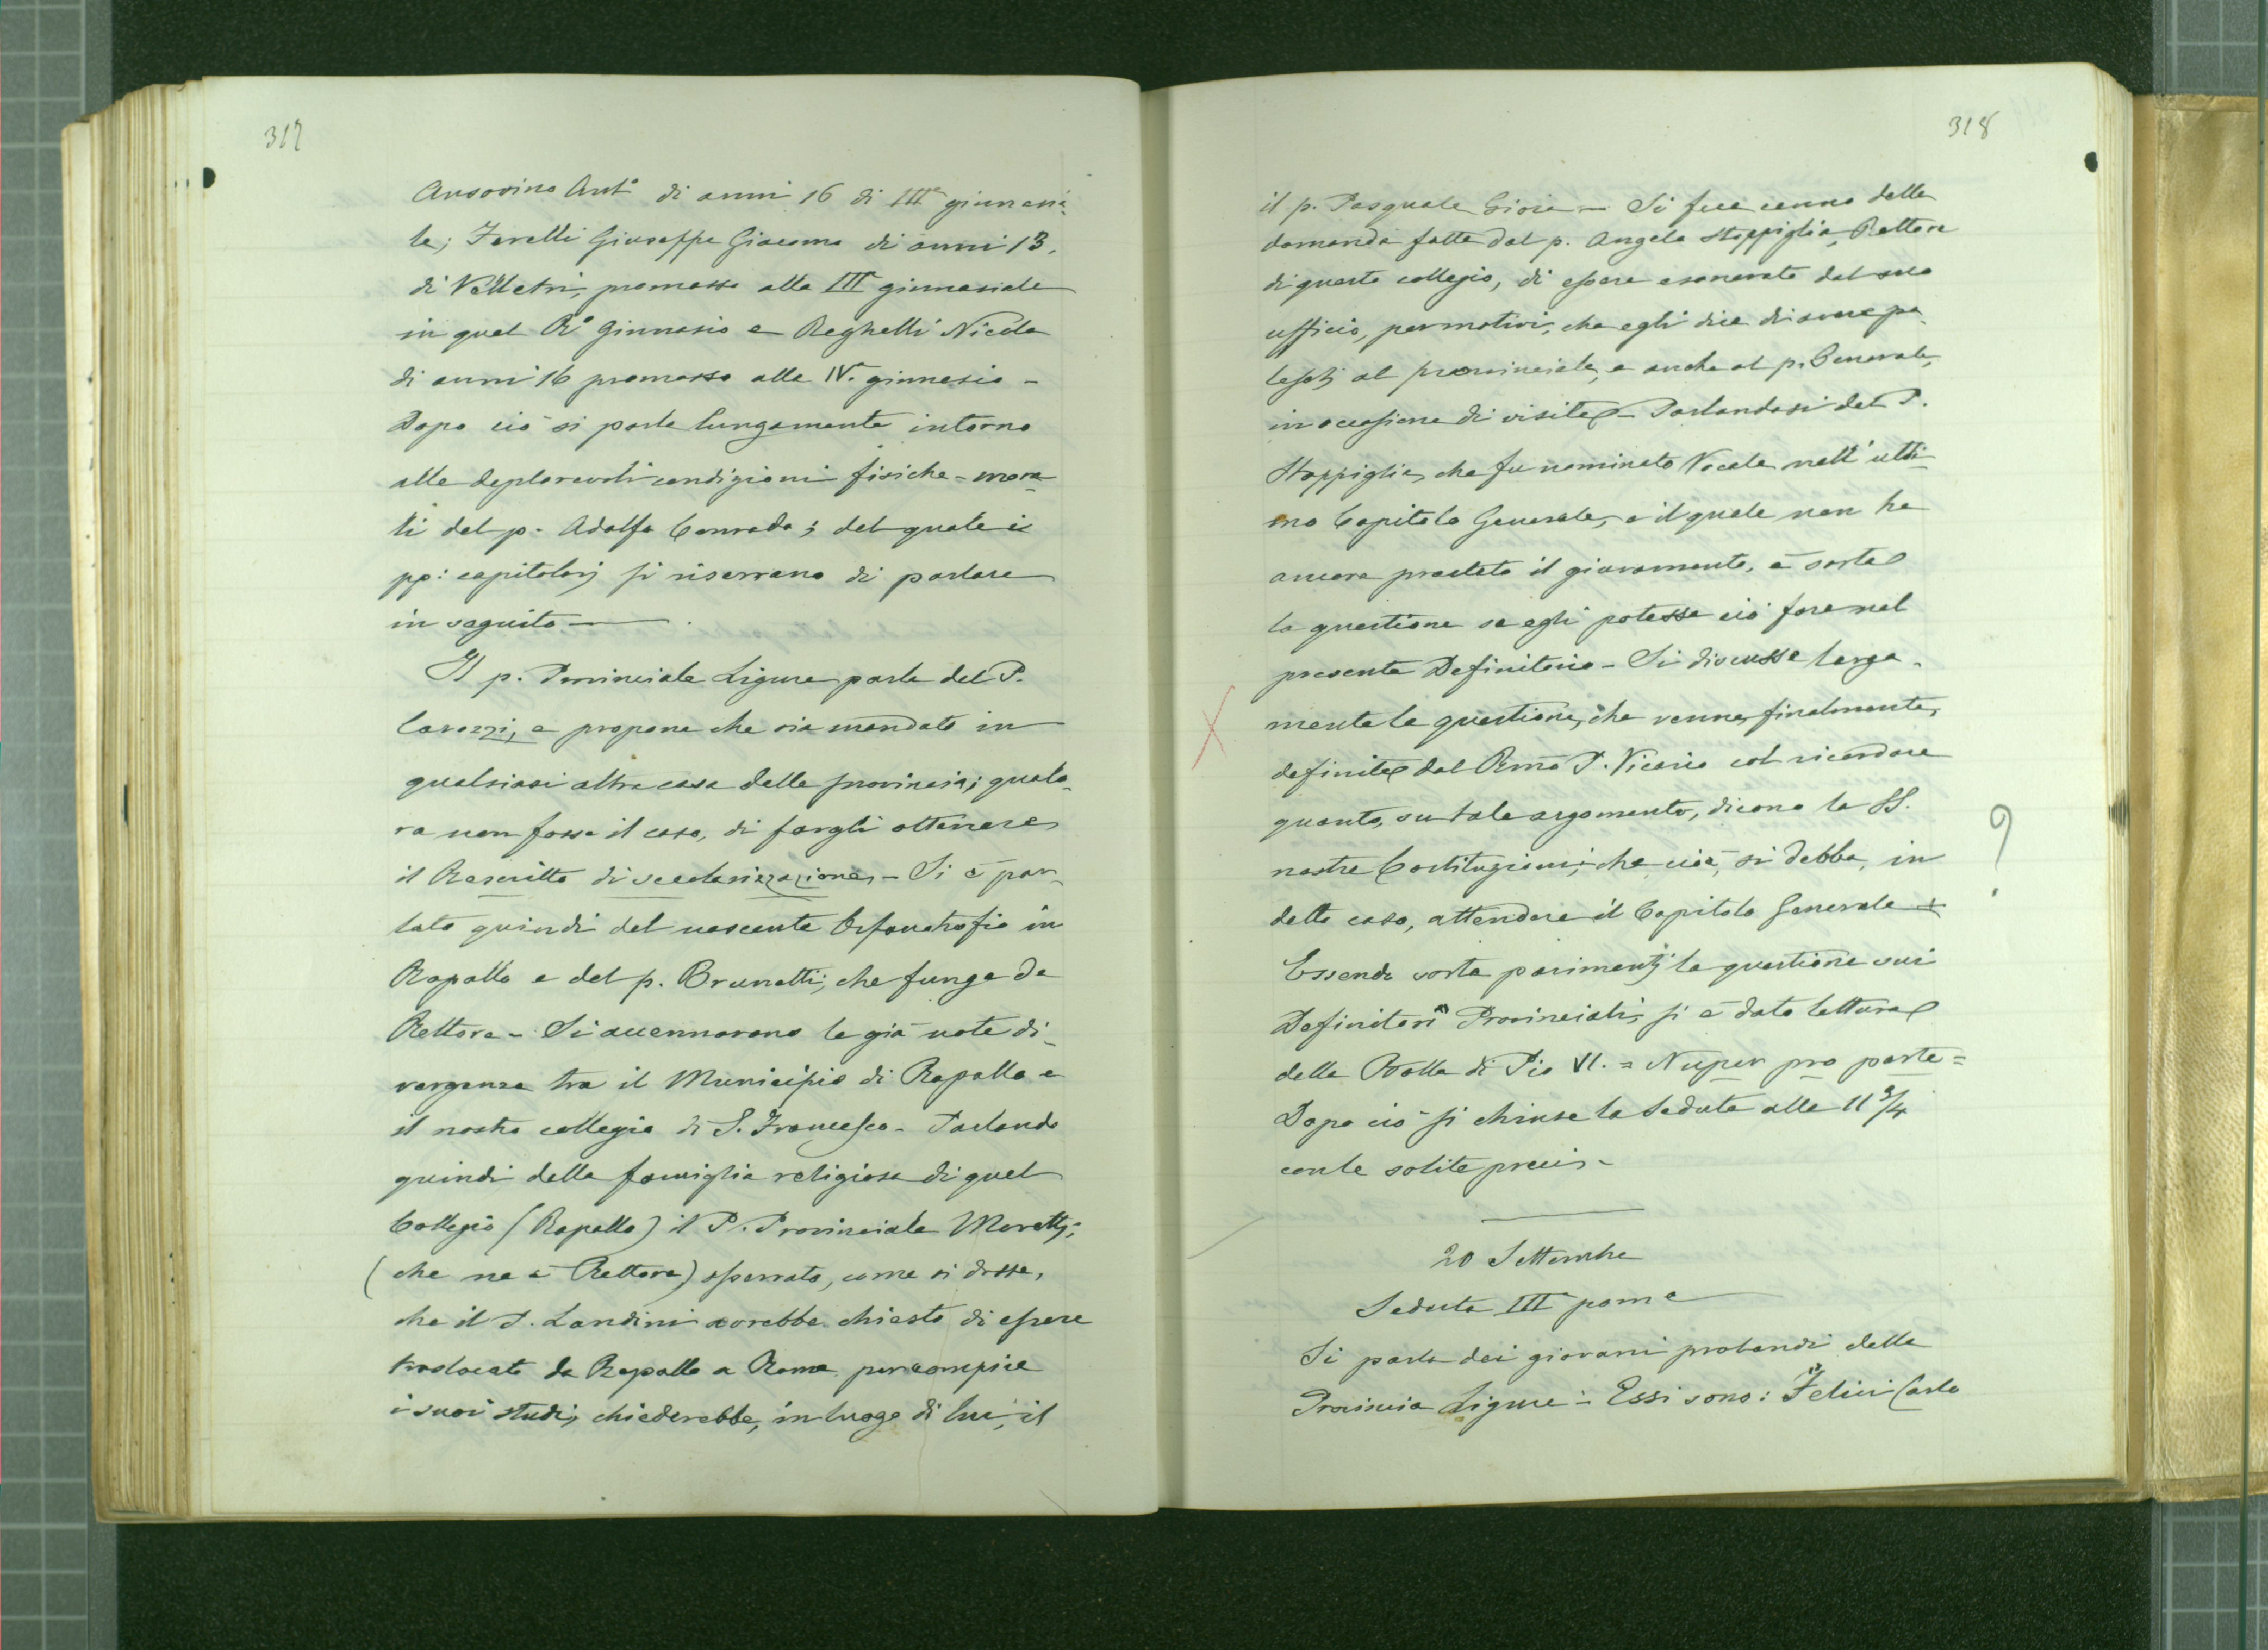 317
Ansovino Ant.° di anni 16 di IIIª ginnasia-
le; Farelli Giuseppe Giacomo di anni 13,
di Velletri, promosso alla IIIª ginnasiale
in quel R.° Ginnasio e Reghelli Nicola
di anni 16 promosso alla IVª ginnasio -
Dopo ciò si parla lungamente intorno
alle deplorevoli condizioni fisiche-mora-
li del p. Adolfo Conrado; del quale i
pp: capitolarj si riservano di parlare
in seguito.—
Il p. Provinciale Ligure parla del P.
Carozzi, e propone che sia mandato in
qualsiasi altra casa della provincia; qualo-
ra non fosse il caso, di fargli ottenere
il Rescritto di secolarizzazione. - Si è par-
lato quindi del nascente Orfanotrofio in
Rapallo e del p. Brunetti, che funge da
Rettore - Si accennarono le già note di-
vergenze tra il Municipio di Rapallo e
il nostro collegio di S. Francesco - Parlando
quindi della famiglia religiosa di quel
Collegio (Rapallo) il P. Provinciale Moretti,
(che ne è Rettore) osservato, come si disse,
che il P. Landini avrebbe chiesto di essere
traslocato da Rapallo a Roma per compire
i suoi studi, chiederebbe, in luogo di lui, il
318
il p. Pasquale Gioia — Si fece cenno della
domanda fatta dal p. Angelo Stoppiglia, Rettore
di questo collegio, di essere esonerato dal suo
ufficio, per motivi, che egli dice di avere pa-
lesati al provinciale, e anche al p. Generale,
in occasione di visita - Parlandosi del P.
Stoppiglia, che fu nominato Vocale nell'ulti-
mo Capitolo Generale, e il quale non ha
ancora prestato il giuramento, è sorta
la questione se egli potesse ciò fare nel
presente Definitorio - Si discusse larga-
mente la questione, che venne, finalmente,
definita dal Rmo P. Vicario col ricordare
quanto, su tale argomento, dicono le SS.
nostre Costituzioni; che cioè, si debba, in
detto caso, attendere il Capitolo Generale +
?
Essendo sorta parimenti la questione sui
Definitori Provinciali, si è data lettura
della Bolla di Pio VI. = Nuper pro parte =
Dopo ciò si chiuse la seduta alle 11 3/4
con le solite preci -
20 Settembre
Seduta IIIª pom.e
Si parla dei giovani probandi della
Provincia Ligure - Essi sono: Felici Carlo